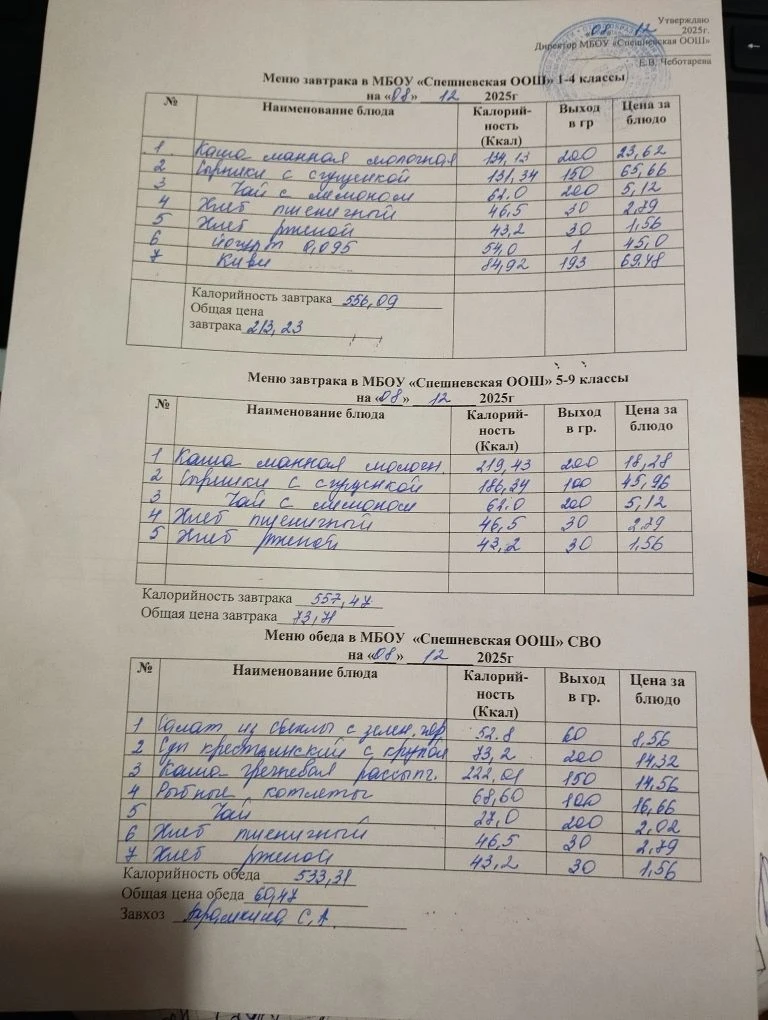 Утверждаю
08 12 2025г.
Директор МБОУ «Спешневская ООШ»
Е.В. Чеботарева
Меню завтрака в МБОУ «Спешневская ООШ» 1-4 классы
на «08» 12 2025г
№ Наименование блюда Калорий-ность (Ккал) Выход в гр Цена за блюдо
1 Каша манная молочная 134,13 200 23,62
2 Сырники с сгущенкой 131,34 150 65,66
3 Чай с лимоном 62.0 200 5,12
4 Хлеб пшеничный 46,5 30 2,79
5 Хлеб ржаной 43,2 30 1,56
6 йогурт 0,095 54,0 1 45,0
7 Киви 84,92 193 69.48
Калорийность завтрака 556,09
Общая цена
завтрака 213,23
Меню завтрака в МБОУ «Спешневская ООШ» 5-9 классы
на «08» 12 2025г
№ Наименование блюда Калорий-ность (Ккал) Выход в гр. Цена за блюдо
1 Каша манная молочн. 219,43 200 18,28
2 Сырники с сгущенкой 186,34 100 45,96
3 Чай с лимоном 62.0 200 5,12
4 Хлеб пшеничный 46,5 30 2,79
5 Хлеб ржаной 43,2 30 1,56
Калорийность завтрака 557,47
Общая цена завтрака 73,71
Меню обеда в МБОУ «Спешневская ООШ» СВО
на «08» 12 2025г
№ Наименование блюда Калорий-ность (Ккал) Выход в гр. Цена за блюдо
1 Салат из свеклы с зелен. гор 52.8 60 8,56
2 Суп крестьянский с крупой 73,2 200 14,32
3 Каша гречневая рассыпч. 222,01 150 14,56
4 Рыбные котлеты 68,60 100 16,66
5 Чай 27,0 200 2,02
6 Хлеб пшеничный 46,5 30 2,79
7 Хлеб ржаной 43,2 30 1,56
Калорийность обеда 533,31
Общая цена обеда 60,47
Завхоз С.А.